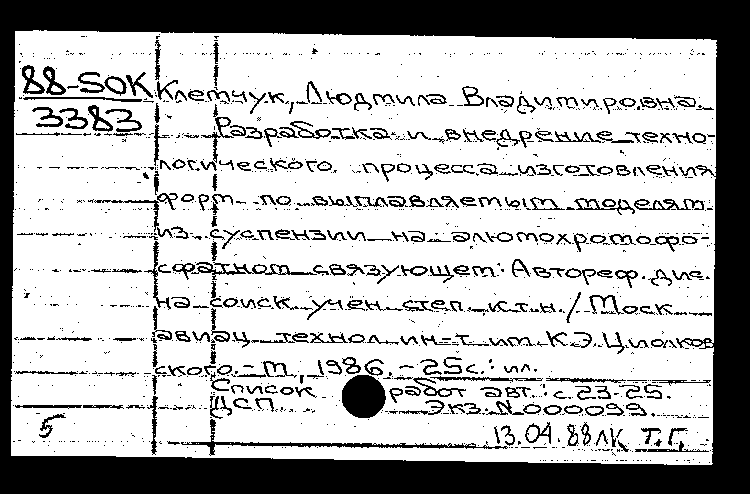 88-SOK
3383
Клетчук, Людмила Владимировна
Разработка и внедрение техно-
логического процесса изготовления
форм по выплавляемым моделям
из суспензии на алюмохромофо-
сфатном связующем: Автореф. дис.
на соиск учен степ к.т.н. / Моск
авиац технол ин-т им. К.Э. Циолков
ского. - М, 1986. - 25с.: ил.
Список работ авт.: с. 23-25.
ЦСП. Экз. N000099.
5
13.04.88 ЛК Т.Г.